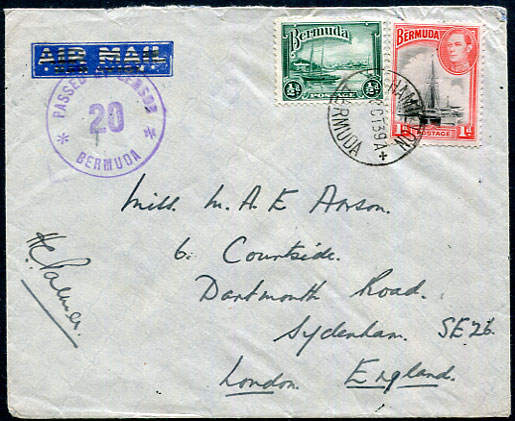 AIR MAIL
PAR AVION
PASSED CENSOR
20
BERMUDA
Bermuda
½d POSTAGE ½d
BERMUDA
1d POSTAGE 1d
HAMILTON
OCT 39 A
BERMUDA
Miss. M. A. E
6. Courtside.
Dartmouth Road.
Sydenham. SE26.
London. England.
H.C. Palmer.